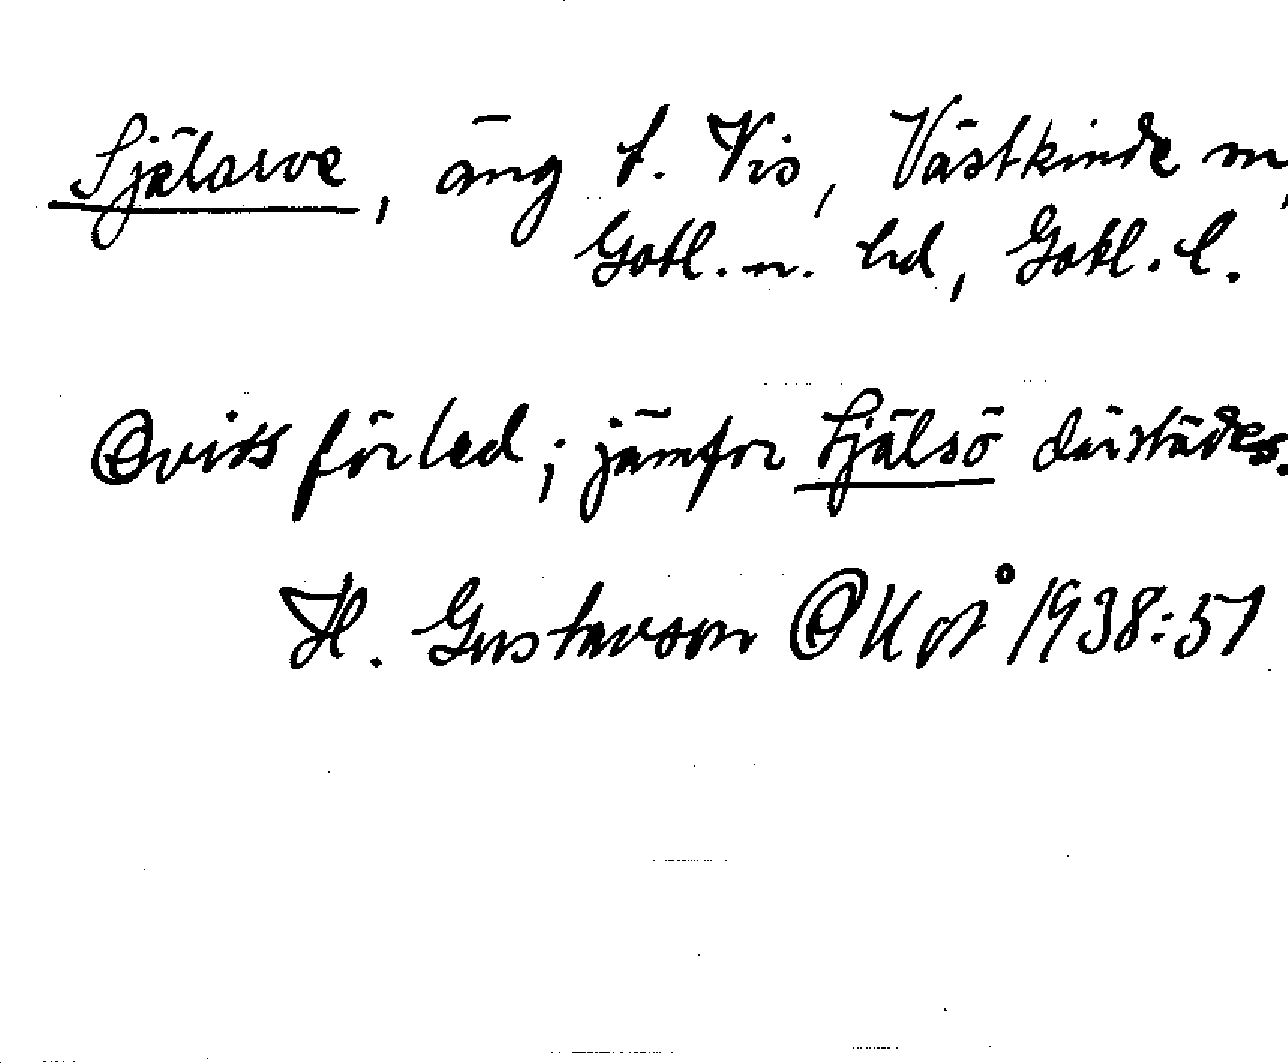 Själarve, äng t. Vis, Västkinde sn,
Gotl. n. hd, Gotl. l.
Oviss förled; jämför Själsö därstädes.
H. Gustavson OKOÅ 1938:51